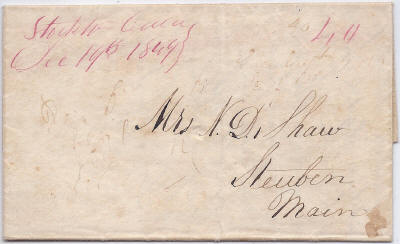 Stockton
Dec 19th 1849
40
Mrs N. D. Shaw
Steuben
Main